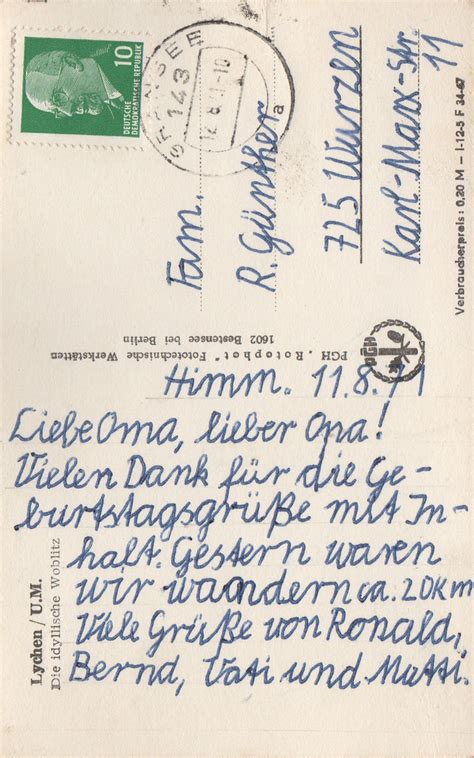 10
DEUTSCHE
DEMOKRATISCHE REPUBLIK
GRANSEE
143
a
Fam.
R. Günther
725 Wurzen
Karl-Marx-Str.
11
Verbraucherpreis: 0,20 M — I-12-5 F 34-67
PGH „Rotophot" Fototechnische Werkstätten
1602 Bestensee bei Berlin
PGH
Himm. 11.8.71
Liebe Oma, lieber Opa!
Vielen Dank für die Ge-
burtstagsgrüße mit In-
halt. Gestern waren
wir wandern ca. 20km
Viele Grüße von Ronald,
Bernd, Vati und Mutti.
Lychen / U.M.
Die idyllische Woblitz